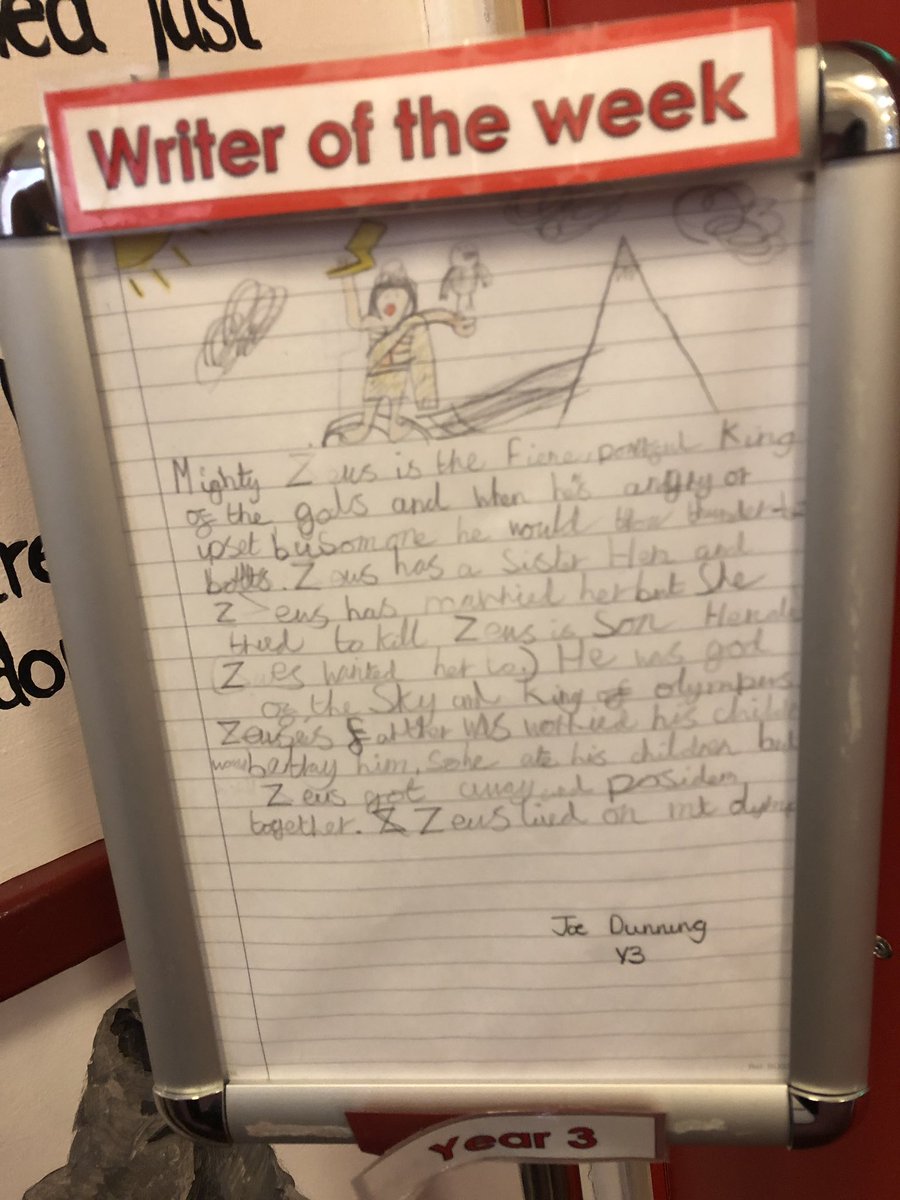 ed just
Writer of the week
Mighty Zeus is the Fierce, King
of the gods and when he's angry or
upset by somone he would thunder-
bolts. Zeus has a Sister Hera and
Zeus has married her but She
tried to kill Zeus is Son
(Zues wanted her to.) He was god
of the Sky and King of olympus
Zeuses father was worried his
betray him, so he ate his children
Zeus got away and posiden
together. Zeus lived on mt
re
do
Joe Dunning
Y3
Year 3